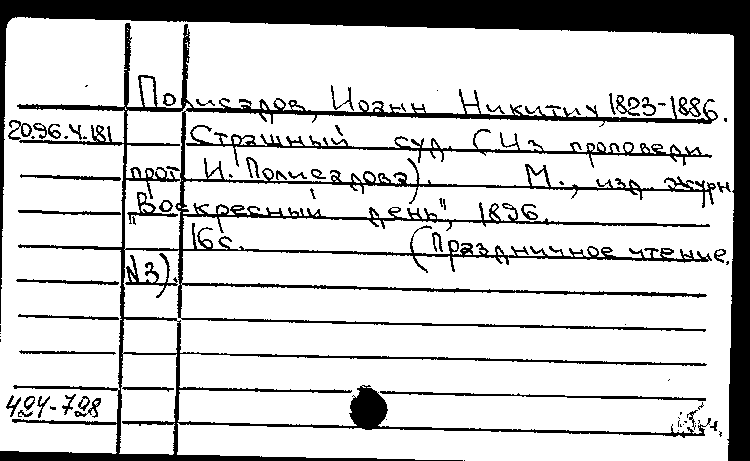 Полисадов, Иоанн Никитич, 1823-1886.
20.96.4.181 Страшный суд. (Из проповеди
прот. И. Полисадова). М., изд. журн.
"Воскресный день", 1896.
16с. (Праздничное чтение,
N3).
424-728